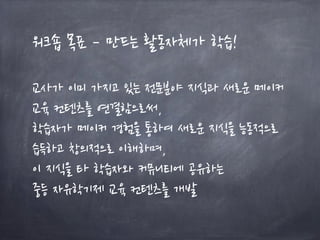 워크숍 목표 - 만드는 활동자체가 학습!
교사가 이미 가지고 있는 전문분야 지식과 새로운 메이커
교육 컨텐츠를 연결함으로써,
학습자가 메이커 경험을 통하여 새로운 지식을 능동적으로
습득하고 창의적으로 이해하며,
이 지식을 타 학습자와 커뮤니티에 공유하는
중등 자유학기제 교육 컨텐츠를 개발